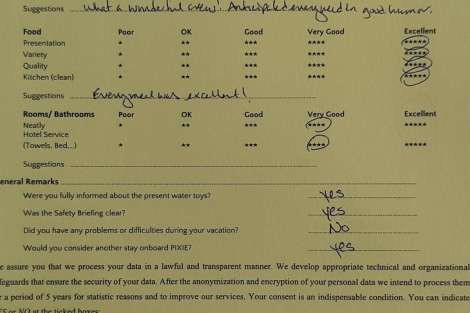 Suggestions What a wonderful crew! Anticipated every need in good humor.
Food Poor OK Good Very Good Excellent
Presentation * ** *** **** *****
Variety * ** *** **** *****
Quality * ** *** **** *****
Kitchen (clean) * ** *** **** *****
Suggestions Every meal was excellent!
Rooms/ Bathrooms Poor OK Good Very Good Excellent
Neatly * ** *** **** *****
Hotel Service
(Towels, Bed,...) * ** *** **** *****
Suggestions
eneral Remarks
Were you fully informed about the present water toys? yes
Was the Safety Briefing clear? yes
Did you have any problems or difficulties during your vacation? No
Would you consider another stay onboard PIXIE? yes
e assure you that we process your data in a lawful and transparent manner. We develop appropriate technical and organizational
feguards that ensure the security of your data. After the anonymization and encryption of your personal data we intend to process them
r a period of 5 years for statistic reasons and to improve our services. Your consent is an indispensable condition. You can indicate
ES or NO at the ticked boxes: